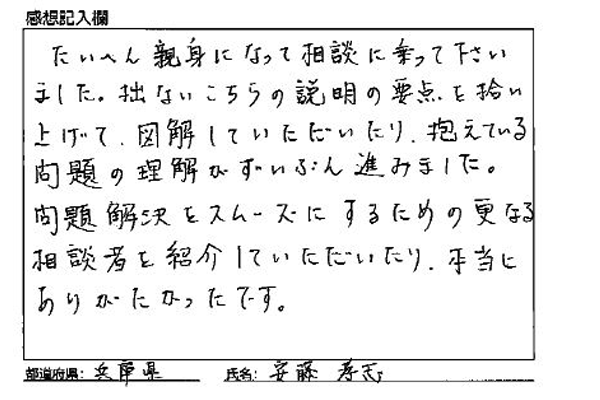 感想記入欄
たいへん親身になって相談に乗って下さい
ました。拙ないこちらの説明の要点を拾い
上げて、図解していただいたり、抱えている
問題の理解がずいぶん進みました。
問題解決をスムーズにするための更なる
相談者を紹介していただいたり、本当に
ありがたかったです。
都道府県: 兵庫県 氏名: 安藤 孝志